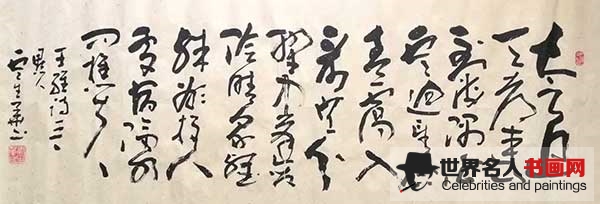 太乙近
天都連山
到海隅白
雲迴望合
青靄入
看無分
野中峰變
陰晴眾壑
殊欲投人
處宿隔水
問樵夫
王維詩
世界名人书画网
Celebrities and paintings